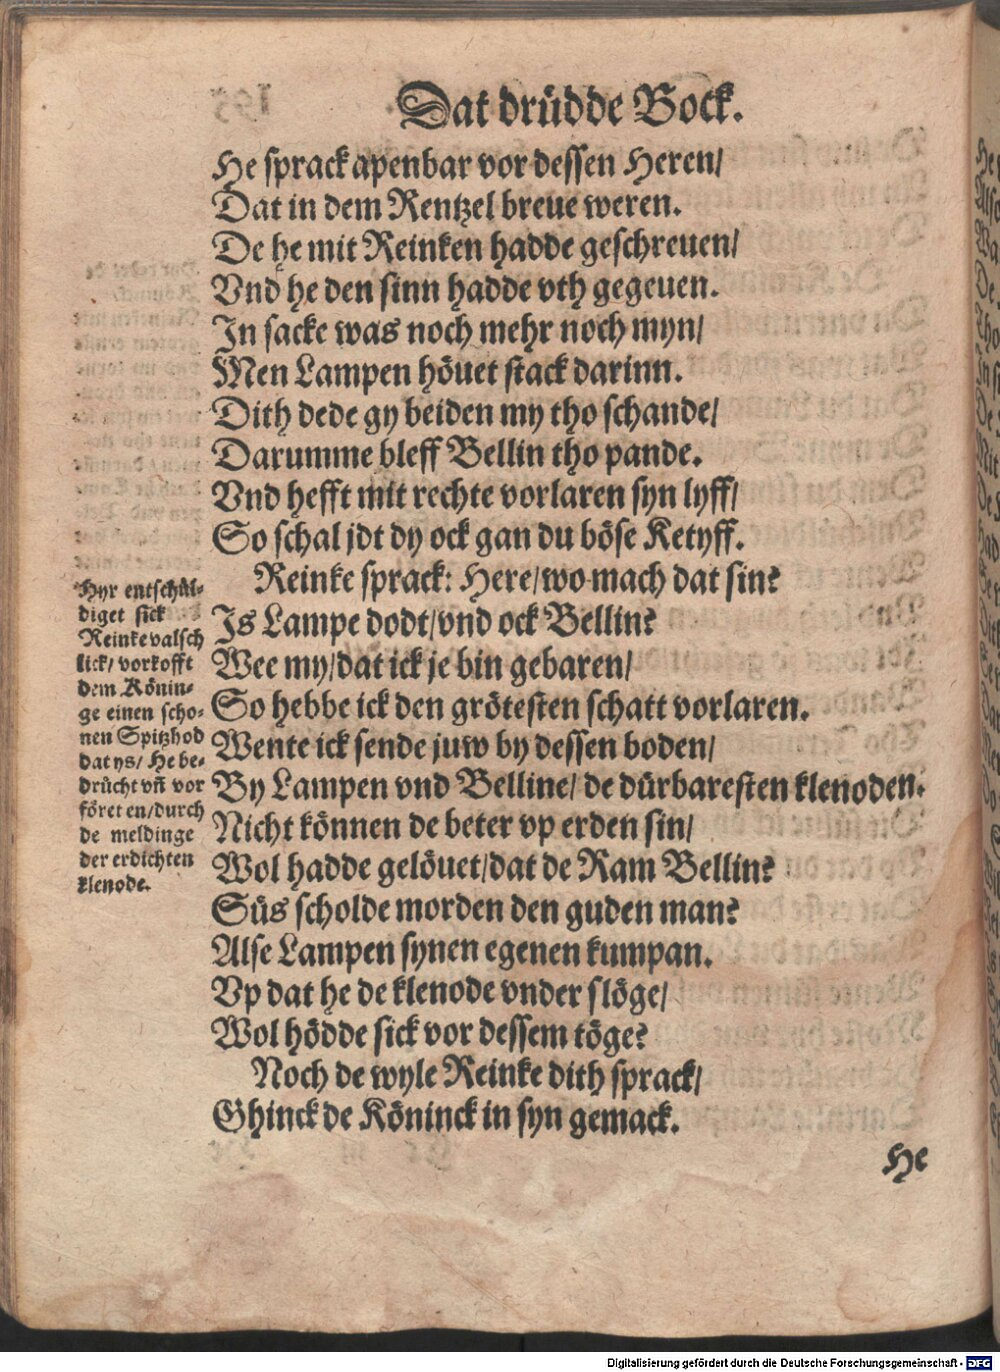 Dat drüdde Bock.
He sprack apenbar vor dessen Heren/
Dat in dem Rentzel breue weren.
De he mit Reinken hadde geschreuen/
Vnd he den sinn hadde vth gegeuen.
In sacke was noch mehr noch myn/
Men Lampen höuet stack darinn.
Dith dede gy beiden my tho schande/
Darumme bleff Bellin tho pande.
Vnd hefft mit rechte vorlaren syn lyff/
So schal jdt dy ock gan du böse Ketyff.
Reinke sprack: Here/wo mach dat sin?
Is Lampe dodt/vnd ock Bellin?
Wee my/dat ick je bin gebaren/
So hebbe ick den grötesten schatt vorlaren.
Wente ick sende juw by dessen boden/
By Lampen vnd Belline/ de dürbaresten klenoden.
Nicht können de beter vp erden sin/
Wol hadde gelöuet/dat de Ram Bellin?
Süs scholde morden den guden man?
Alse Lampen synen egenen kumpan.
Vp dat he de klenode vnder slöge/
Wol hödde sick vor dessem töge?
Noch de wyle Reinke dith sprack/
Ghinck de Köninck in syn gemack.
He
Hyr entschül-
diget sick
Reinke valsch
lick/ vorkofft
dem Könin-
ge einen scho-
nen Spitzhod
dat ys/ He be-
drücht vñ vor
föret en/durch
de meldinge
der erdichten
klenode.
Digitalisierung gefördert durch die Deutsche Forschungsgemeinschaft - DFG